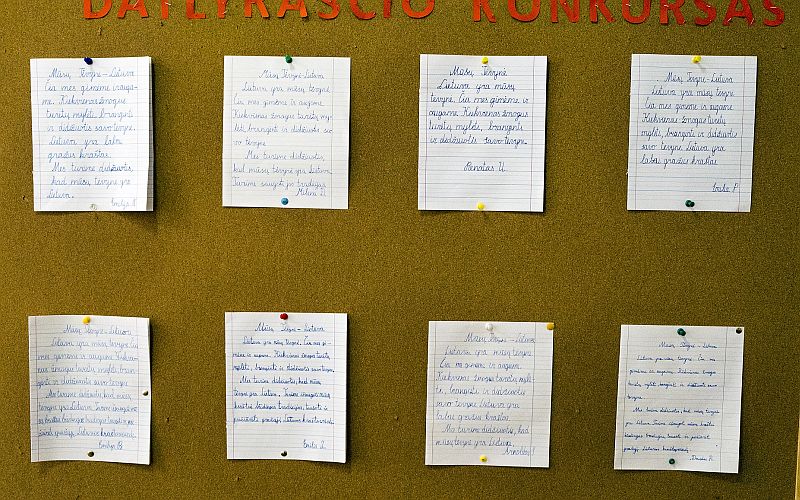 DAILYRAŠČIO KONKURSAS
Mūsų Tėvynė-Lietuva
Čia mes gimėme ir auga-
me. Kiekvienas žmogus
turėtų mylėti, branginti
ir didžiuotis savo tėvyne.
Lietuva yra labai
gražus kraštas.
Mes turime didžiuotis,
kad mūsų tėvynė yra
Lietuva.
Mūsų Tėvynė-Lietuva
Lietuva yra mūsų tėvynė.
Čia mes gimėme ir augame.
Kiekvienas žmogus turėtų my-
lėti, branginti ir didžiuotis sa-
vo tėvyne.
Mes turime didžiuotis,
kad mūsų tėvynė yra Lietuva.
Turime saugoti jos tradicijas.
Milena
Mūsų Tėvynė
Lietuva yra mūsų
tėvynė. Čia mes gimėme ir
augame. Kiekvienas žmogus
turėtų mylėti, branginti
ir didžiuotis savo tėvyne.
Renatas U.
Mūsų Tėvynė-Lietuva
Lietuva yra mūsų tėvynė.
Čia mes gimėme ir augame.
Kiekvienas žmogus turėtų
mylėti, branginti ir didžiuotis
savo tėvyne. Lietuva yra
labai gražus kraštas.
Mūsų Tėvynė-Lietuva
Lietuva yra mūsų tėvynė. Čia
mes gimėme ir augame. Kiekvie-
nas žmogus turėtų mylėti, bran-
ginti ir didžiuotis savo tėvyne.
Mes turime didžiuotis, kad mūsų
tėvynė yra Lietuva.
Mūsų Tėvynė-Lietuva
Lietuva yra mūsų tėvynė. Čia mes gi-
mėme ir augame. Kiekvienas žmogus turėtų
mylėti, branginti ir didžiuotis savo tėvyne.
Mes turime didžiuotis, kad mūsų
tėvynė yra Lietuva.
Mūsų Tėvynė-Lietuva
Lietuva yra mūsų tėvynė.
Čia mes gimėme ir augame.
Kiekvienas žmogus turėtų mylė-
ti, branginti ir didžiuotis
savo tėvyne. Lietuva yra
labai gražus kraštas.
Mes turime didžiuotis, kad
mūsų tėvynė yra Lietuva.
Mūsų Tėvynė-Lietuva
Lietuva yra mūsų tėvynė. Čia mes
gimėme ir augame. Kiekvienas žmogus
turėtų mylėti, branginti ir didžiuotis savo
tėvyne.
Mes turime didžiuotis, kad mūsų tėvynė
yra Lietuva.